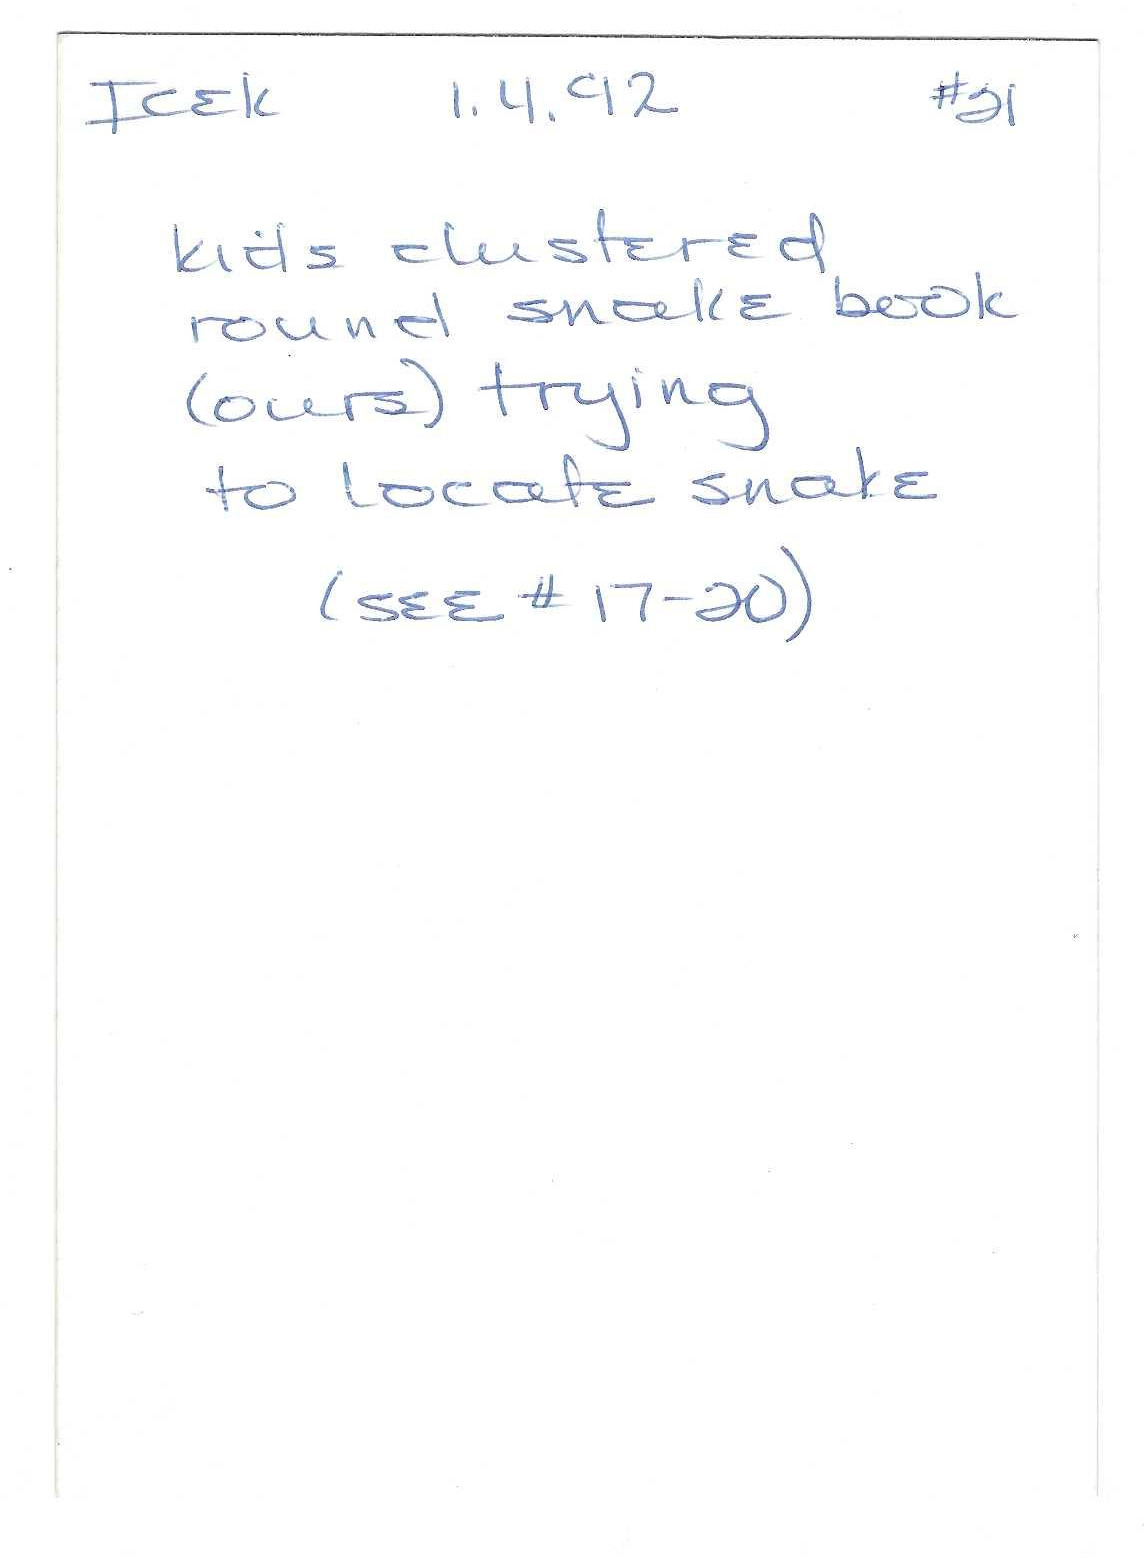 ICEK 1.4.92 #21
kids clustered
round snake book
(ours) trying
to locate snake
(SEE # 17-20)